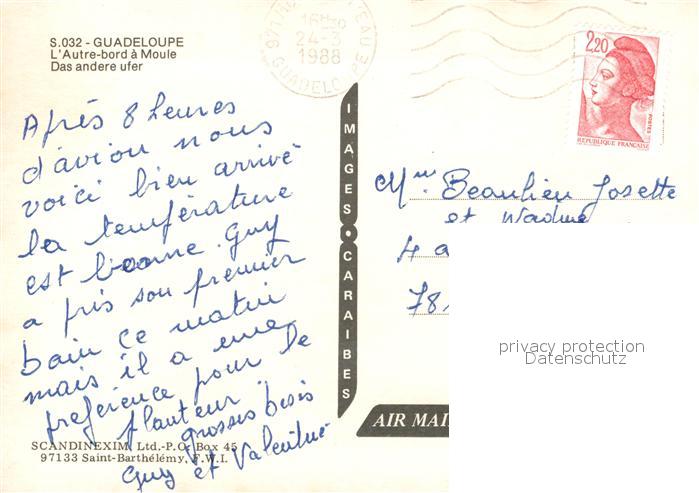 S.032 - GUADELOUPE
L'Autre-bord à Moule
Das andere ufer
24-3
1988
GUADELOUPE
2,20
POSTES
REPUBLIQUE FRANÇAISE
Après 8 heures
d'avion nous
voici bien arrivé
la température
est bonne. Guy
a pris son premier
bain ce matin
mais il a une
préférence pour le
planteur.
grosses bises
Guy et Valentine
IMAGES CARAIBES
Beaulieu Josette
et Nadine
4 a
78
privacy protection
Datenschutz
AIR MAI
SCANDINEXIM, Ltd.-P.O. Box 45
97133 Saint-Barthélémy, F.W.I.